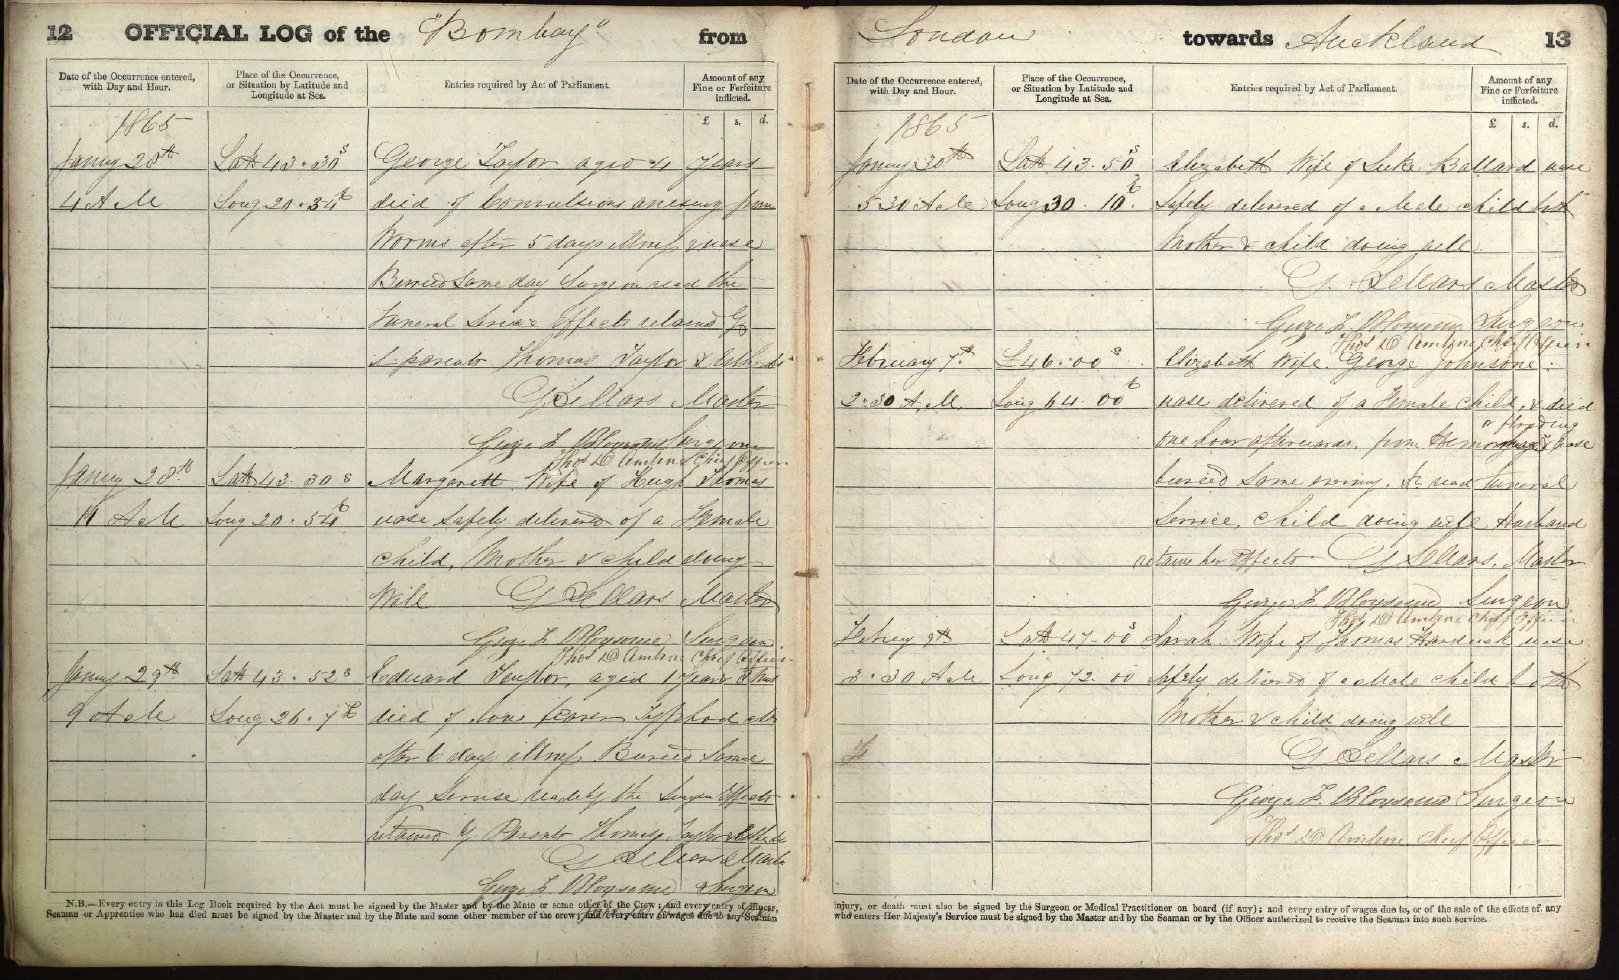 12 OFFICIAL LOG of the "Bombay" from
Date of the Occurrence entered, with Day and Hour.
Place of the Occurrence, or Situation by Latitude and Longitude at Sea.
Entries required by Act of Parliament.
Amount of any Fine or Forfeiture inflicted.
£ s. d.
1865
Janry 28th Latt 43.30 S George Taylor aged 4 years
4 A M Long 20.54 E died of Convulsions from
Worms after 5 days illness wase
Berried Same day Surgeon read the
Funeral Service Effects retained by
parents Thomas Taylor &
G Sellars Master
George F Bloysome Surgeon
Thos D Amline Chief Officer
Janry 28th Latt 43 30 S Margarett Wife of Hugh Thomas
11 A M Long 20.54 E wase Safely delivered of a Female
Child, Mother & child doing
Well G Sellars Master
George F Bloysome Surgeon
Thos D Amline Chief Officer
Janry 29th Latt 43.52 S Edward Taylor, aged 1 Year
9 A M Long 26.7 E died of
after 6 day illness Buried Same
day Servise read by the Surgeon Effects
retained by Parents Thomas Taylor
G Sellars Master
George F Bloysome Surgeon
N.B.—Every entry in this Log Book required by the Act must be signed by the Master and by the Mate or some other of the Crew; and every entry of illness,
Seaman or Apprentice who has died must be signed by the Master and by the Mate and some other member of the crew; and every entry of wages due to any Seaman
London towards Auckland 13
Date of the Occurrence entered, with Day and Hour.
Place of the Occurrence, or Situation by Latitude and Longitude at Sea.
Entries required by Act of Parliament.
Amount of any Fine or Forfeiture inflicted.
£ s. d.
1865
Janry 30th Latt 43.50 S Elizabeth Wife of Luke Ballard wase
5 30 A M Long 30.10 E Safely delivered of a Male child both
Mother & child doing well
G Sellars Master
George F Bloysome Surgeon
Thos D Amline Chief Officer
February 7th L 46.00 S Elizabeth Wife George Johnsone
2.30 A.M. Long 64.00 E wase delivered of a Female Child, & died
or flooding
one hour afterwards, from Hemorrhage & wase
berried Same evening. Dr read funeral
Service, Child doing well Husband
retains her Effects G Sellars. Master
George F Bloysome Surgeon
Thos D Amline Chief Officer
Febry 9th Latt 47-00 S Sarah Wife of Thomas wase
3.30 A M Long 72.00 Safely delivered of a Male Child both
Mother & child doing well
G Sellars Master
George F Bloysome Surgeon
Thos D Amline Chief Officer
injury, or death must also be signed by the Surgeon or Medical Practitioner on board (if any); and every entry of wages due to, or of the sale of the effects of, any
who enters Her Majesty's Service must be signed by the Master and by the Seaman or by the Officer authorized to receive the Seaman into such service.